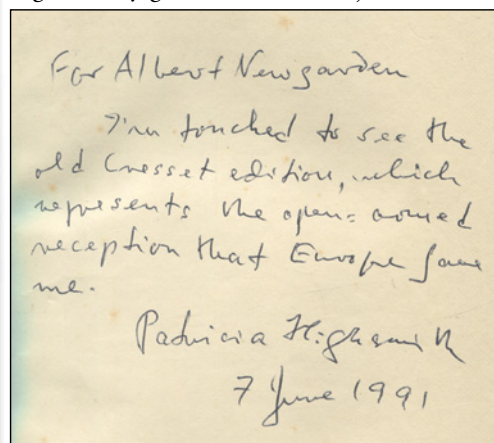 For Albert Newgarden
I'm touched to see the
old Cresset edition, which
represents the open=armed
reception that Europe gave
me.
Patricia Highsmith
7 June 1991